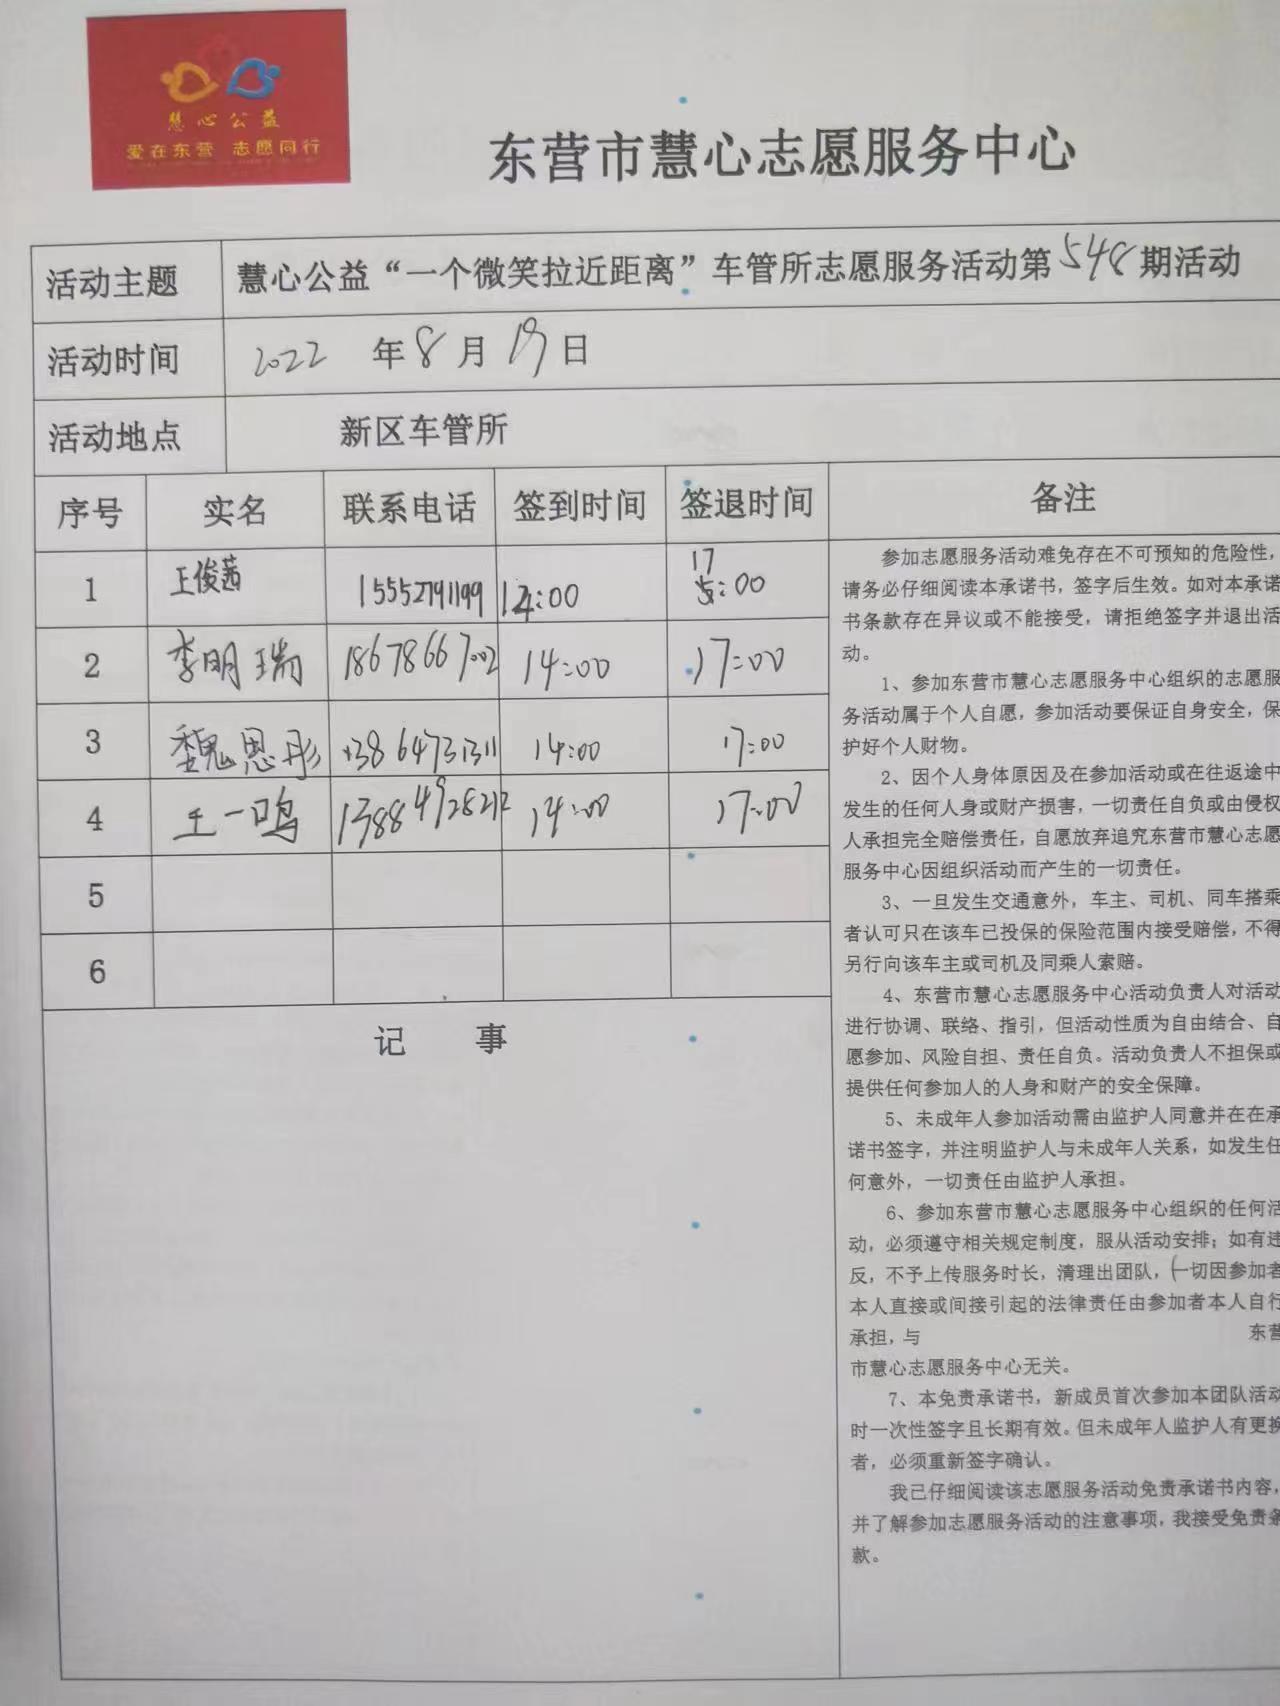 慧心公益
爱在东营 志愿同行
东营市慧心志愿服务中心
活动主题 慧心公益“一个微笑拉近距离”车管所志愿服务活动第548期活动
活动时间 2022 年8月19日
活动地点 新区车管所
序号 实名 联系电话 签到时间 签退时间 备注
1 王俊茜 15552791199 14:00 17:00
2 李明瑞 18678667002 14:00 17:00
3 魏恩彤 13864731311 14:00 17:00
4 王一鸣 14:00 17:00
5
6
记 事
参加志愿服务活动难免存在不可预知的危险性，
请务必仔细阅读本承诺书，签字后生效。如对本承诺
书条款存在异议或不能接受，请拒绝签字并退出活
动。
1、参加东营市慧心志愿服务中心组织的志愿服
务活动属于个人自愿，参加活动要保证自身安全，保
护好个人财物。
2、因个人身体原因及在参加活动或在往返途中
发生的任何人身或财产损害，一切责任自负或由侵权
人承担完全赔偿责任，自愿放弃追究东营市慧心志愿
服务中心因组织活动而产生的一切责任。
3、一旦发生交通意外，车主、司机、同车搭乘
者认可只在该车已投保的保险范围内接受赔偿，不得
另行向该车主或司机及同乘人索赔。
4、东营市慧心志愿服务中心活动负责人对活动
进行协调、联络、指引，但活动性质为自由结合、自
愿参加、风险自担、责任自负。活动负责人不担保或
提供任何参加人的人身和财产的安全保障。
5、未成年人参加活动需由监护人同意并在在承
诺书签字，并注明监护人与未成年人关系，如发生任
何意外，一切责任由监护人承担。
6、参加东营市慧心志愿服务中心组织的任何活
动，必须遵守相关规定制度，服从活动安排；如有违
反，不予上传服务时长，清理出团队，一切因参加者
本人直接或间接引起的法律责任由参加者本人自行
承担，与 东营
市慧心志愿服务中心无关。
7、本免责承诺书，新成员首次参加本团队活动
时一次性签字且长期有效。但未成年人监护人有更换
者，必须重新签字确认。
我已仔细阅读该志愿服务活动免责承诺书内容，
并了解参加志愿服务活动的注意事项，我接受免责条
款。